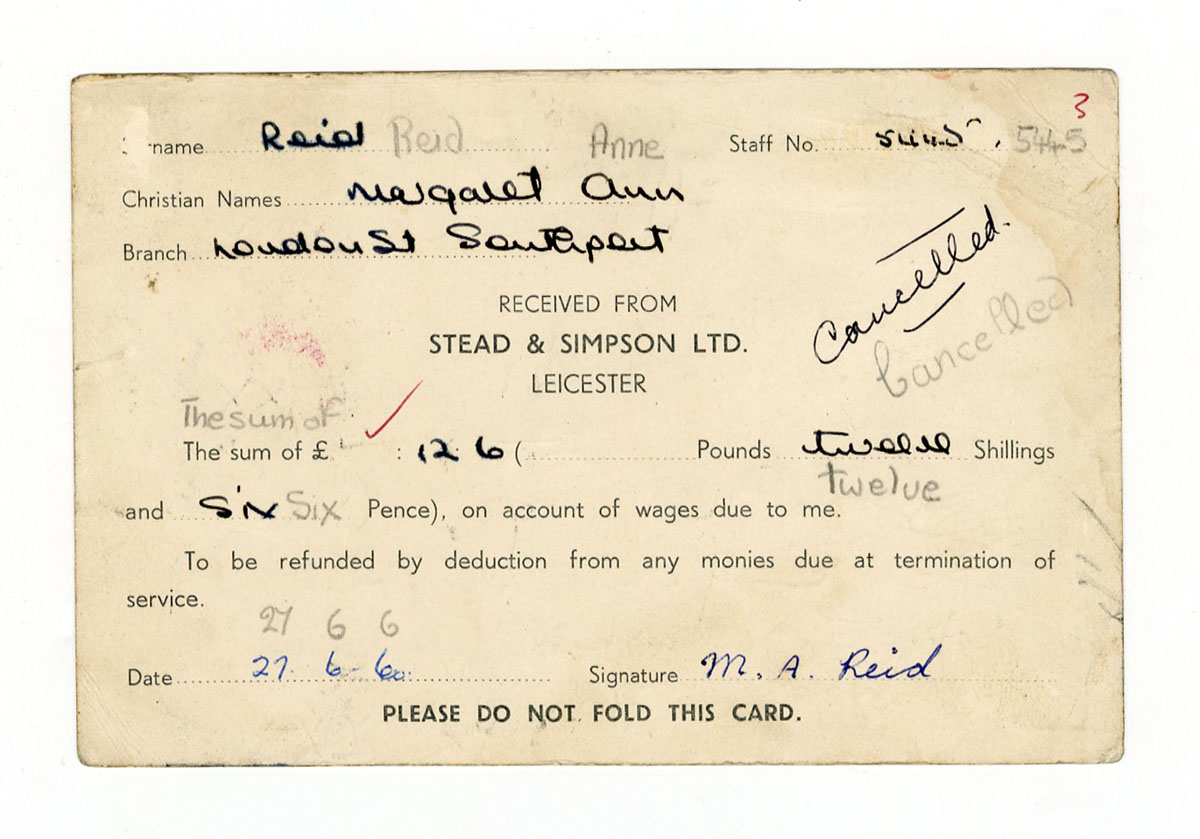 3
Surname Reid Reid Anne Staff No. 5445, 5445
Christian Names Margaret Ann
Branch London St Southport
Cancelled.
Cancelled
RECEIVED FROM
STEAD & SIMPSON LTD.
LEICESTER
The sum of
The sum of £ : 12 6 ( Pounds twelve Shillings
twelve
and Six Six Pence), on account of wages due to me.
To be refunded by deduction from any monies due at termination of
service.
27 6 6
Date 27. 6-60. Signature M. A. Reid
PLEASE DO NOT FOLD THIS CARD.